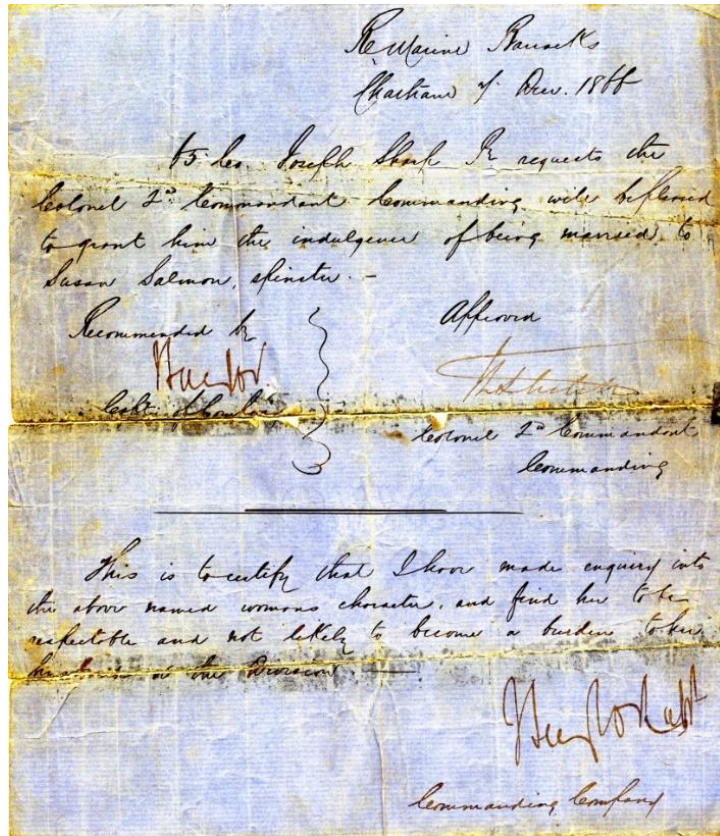 R. Marine Barracks
Chatham 7 Decr. 1866
65. Co. Joseph Sharp Pte requests the
Colonel 2nd Commandant Commanding will be pleased
to grant him the indulgence of being married to
Susan Salmon, spinster. —
Recommended by
Approved
Captn. of Comp
Colonel 2nd Commandant
Commanding
This is to certify that I have made enquiry into
the above named womans character, and find her to be
respectable and not likely to become a burden to her
husband or the Division —
Captn
Commanding Company